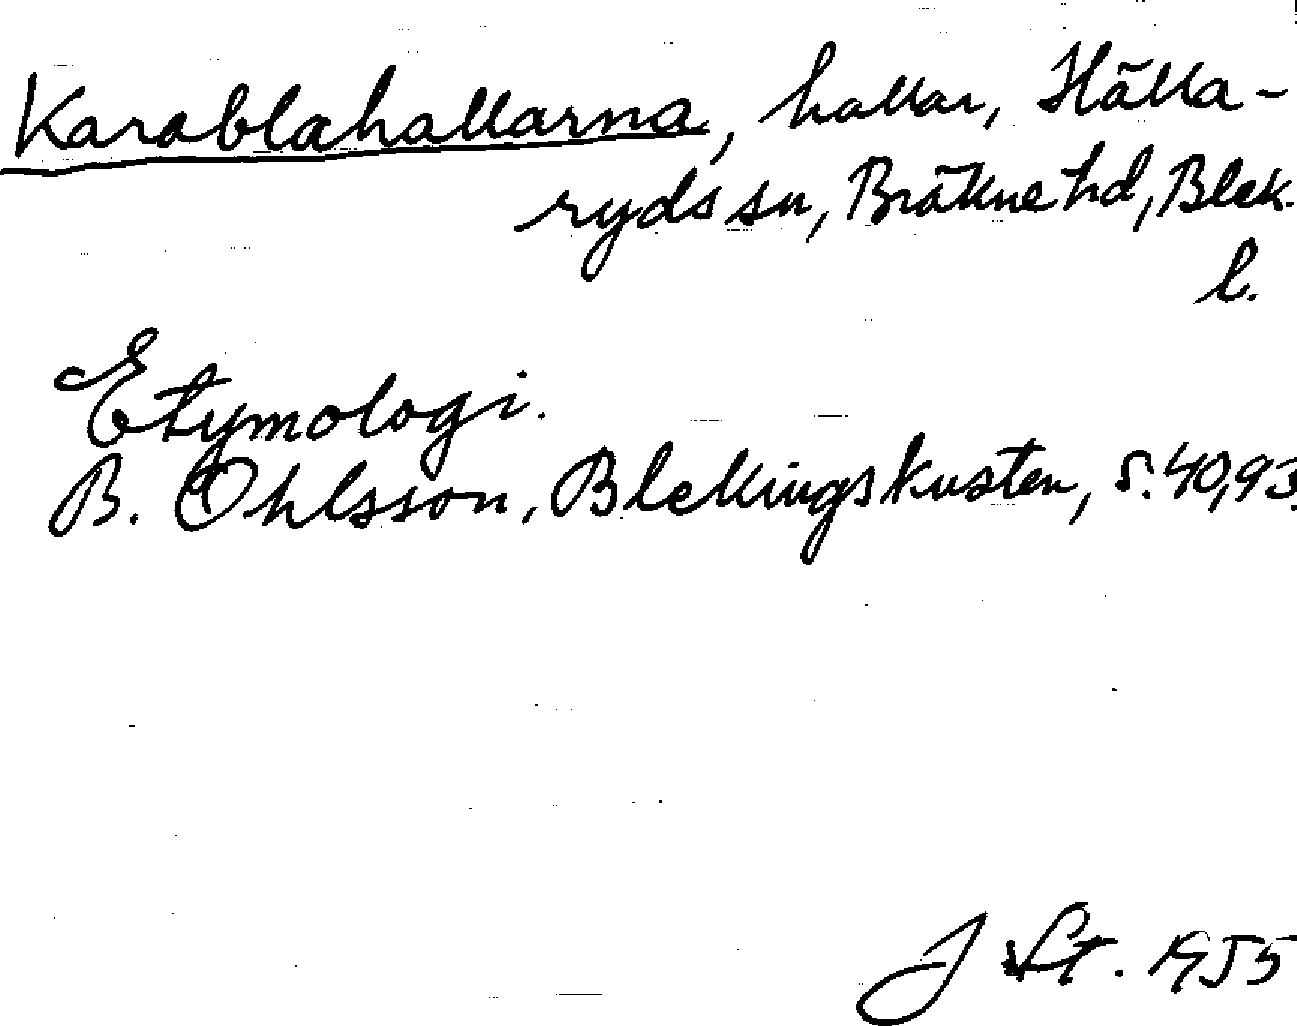 Karablahallarna, hallar, Hälla-
ryds sn, Bräkne hd, Blek.
l.
Etymologi.
B. Ohlsson, Blekingskusten, s. 40, 93.
J St. 1955